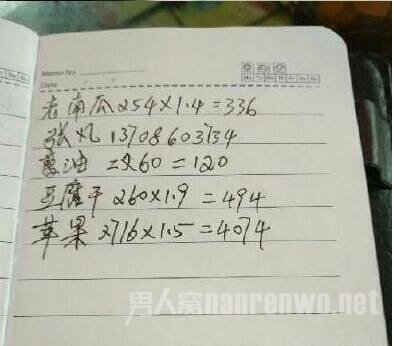 Memo No.
Mo Tu We Th Fr Sa Su
Date
老南瓜 254×1.4=336
张 13708603734
油 2×60=120
豆腐干 260×1.9=494
苹果 2716×1.5=4074
男人窝nanrenwo.net